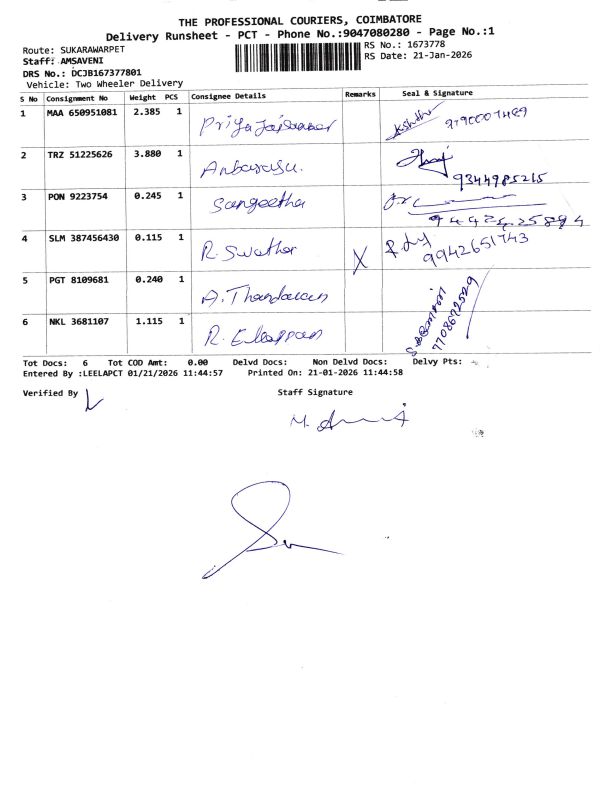 THE PROFESSIONAL COURIERS, COIMBATORE
Delivery Runsheet - PCT - Phone No.:9047080280 - Page No.:1
Route: SUKARAWARPET
RS No.: 1673778
Staff: AMSAVENI
RS Date: 21-Jan-2026
DRS No.: DCJB167377801
Vehicle: Two Wheeler Delivery
S No Consignment No Weight PCS Consignee Details Remarks Seal & Signature
1 MAA 650951081 2.385 1 Priya
2 TRZ 51225626 3.880 1 Anbarasu.
9344985215
3 PON 9223754 0.245 1 Sangeetha
9442425894
4 SLM 387456430 0.115 1 R. Swathi X
9942651743
5 PGT 8109681 0.240 1 A.
6 NKL 3681107 1.115 1 R. Ellappan
7708692529
Tot Docs: 6 Tot COD Amt: 0.00 Delvd Docs: Non Delvd Docs: Delvy Pts:
Entered By :LEELAPCT 01/21/2026 11:44:57 Printed On: 21-01-2026 11:44:58
Verified By
Staff Signature